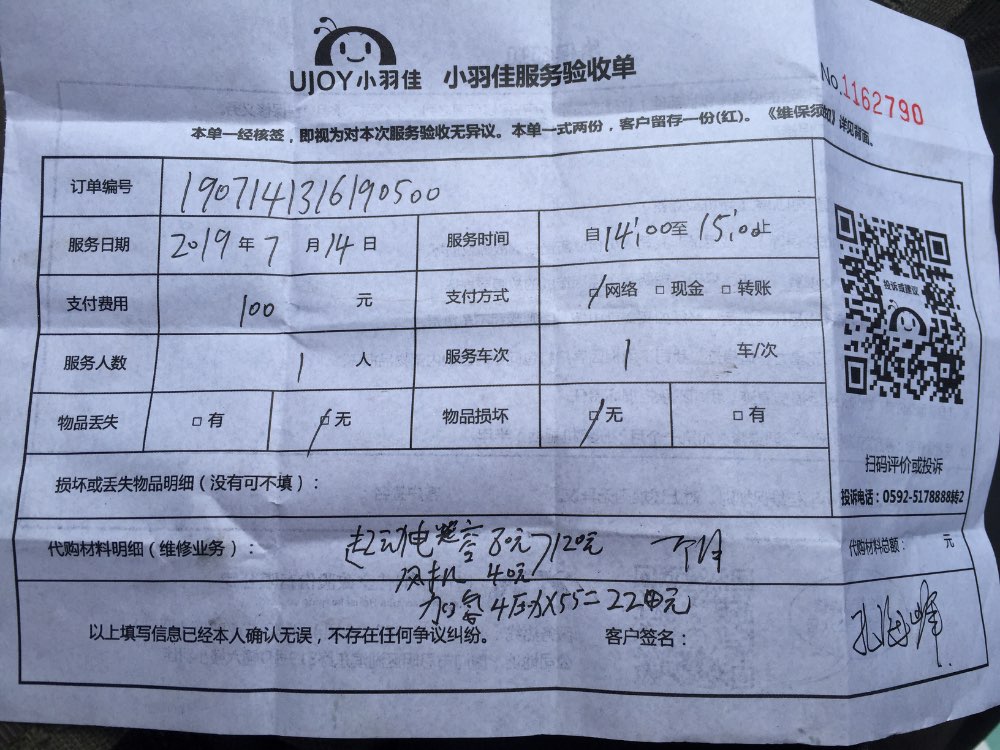 UJOY小羽佳 小羽佳服务验收单
No.1162790
本单一经核签，即视为对本次服务验收无异议。本单一式两份，客户留存一份(红)。《维保须知》详见背面。
订单编号 1907141316190500
服务日期 2019年7月14日 服务时间 自14:00至15:00止
支付费用 100 元 支付方式 网络 现金 转账
服务人数 1 人 服务车次 1 车/次
物品丢失 有 无 物品损坏 无 有
投诉或建议
扫码评价或投诉
投诉电话：0592-5178888转2
损坏或丢失物品明细（没有可不填）：
代购材料明细（维修业务）： 起动电容 80元 120元 代购材料总额： 元
风机 40元
加氟 4压力X55=220元
以上填写信息已经本人确认无误，不存在任何争议纠纷。 客户签名：